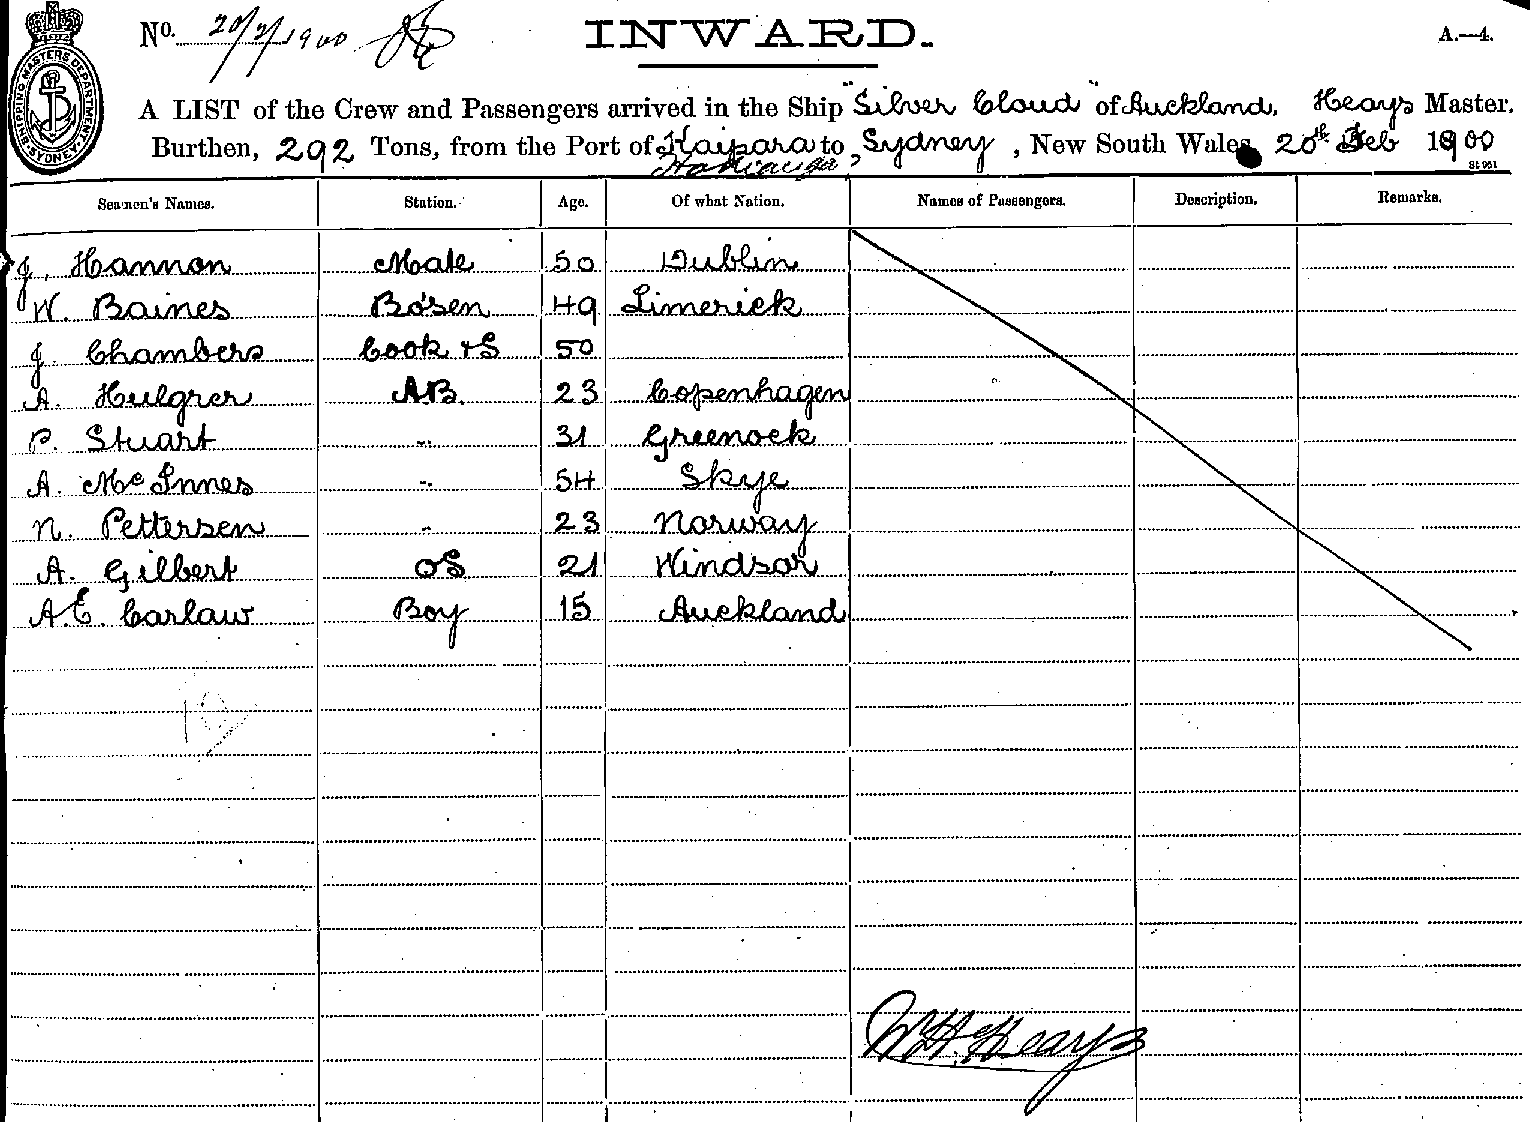 No. 20/2/1900
INWARD.
A.—4.
SHIPPING MASTERS DEPARTMENT
SYDNEY
A LIST of the Crew and Passengers arrived in the Ship "Silver Cloud" of Auckland, Heays Master.
Burthen, 292 Tons, from the Port of Kaipara to Sydney, New South Wales 20th Feb 1900
Hokianga
St 961
Seamen's Names. Station. Age. Of what Nation. Names of Passengers. Description. Remarks.
J. Hannon Mate 50 Dublin
W. Baines Bo'sen 49 Limerick
J. Chambers Cook & S 50
A. Hulgrer AB. 23 Copenhagen
P. Stuart " 31 Greenock
A. McInnes " 54 Skye
N. Pettersen " 23 Norway
A. Gilbert OS 21 Windsor
A.E. Carlaw Boy 15 Auckland
10
W.H. Heays